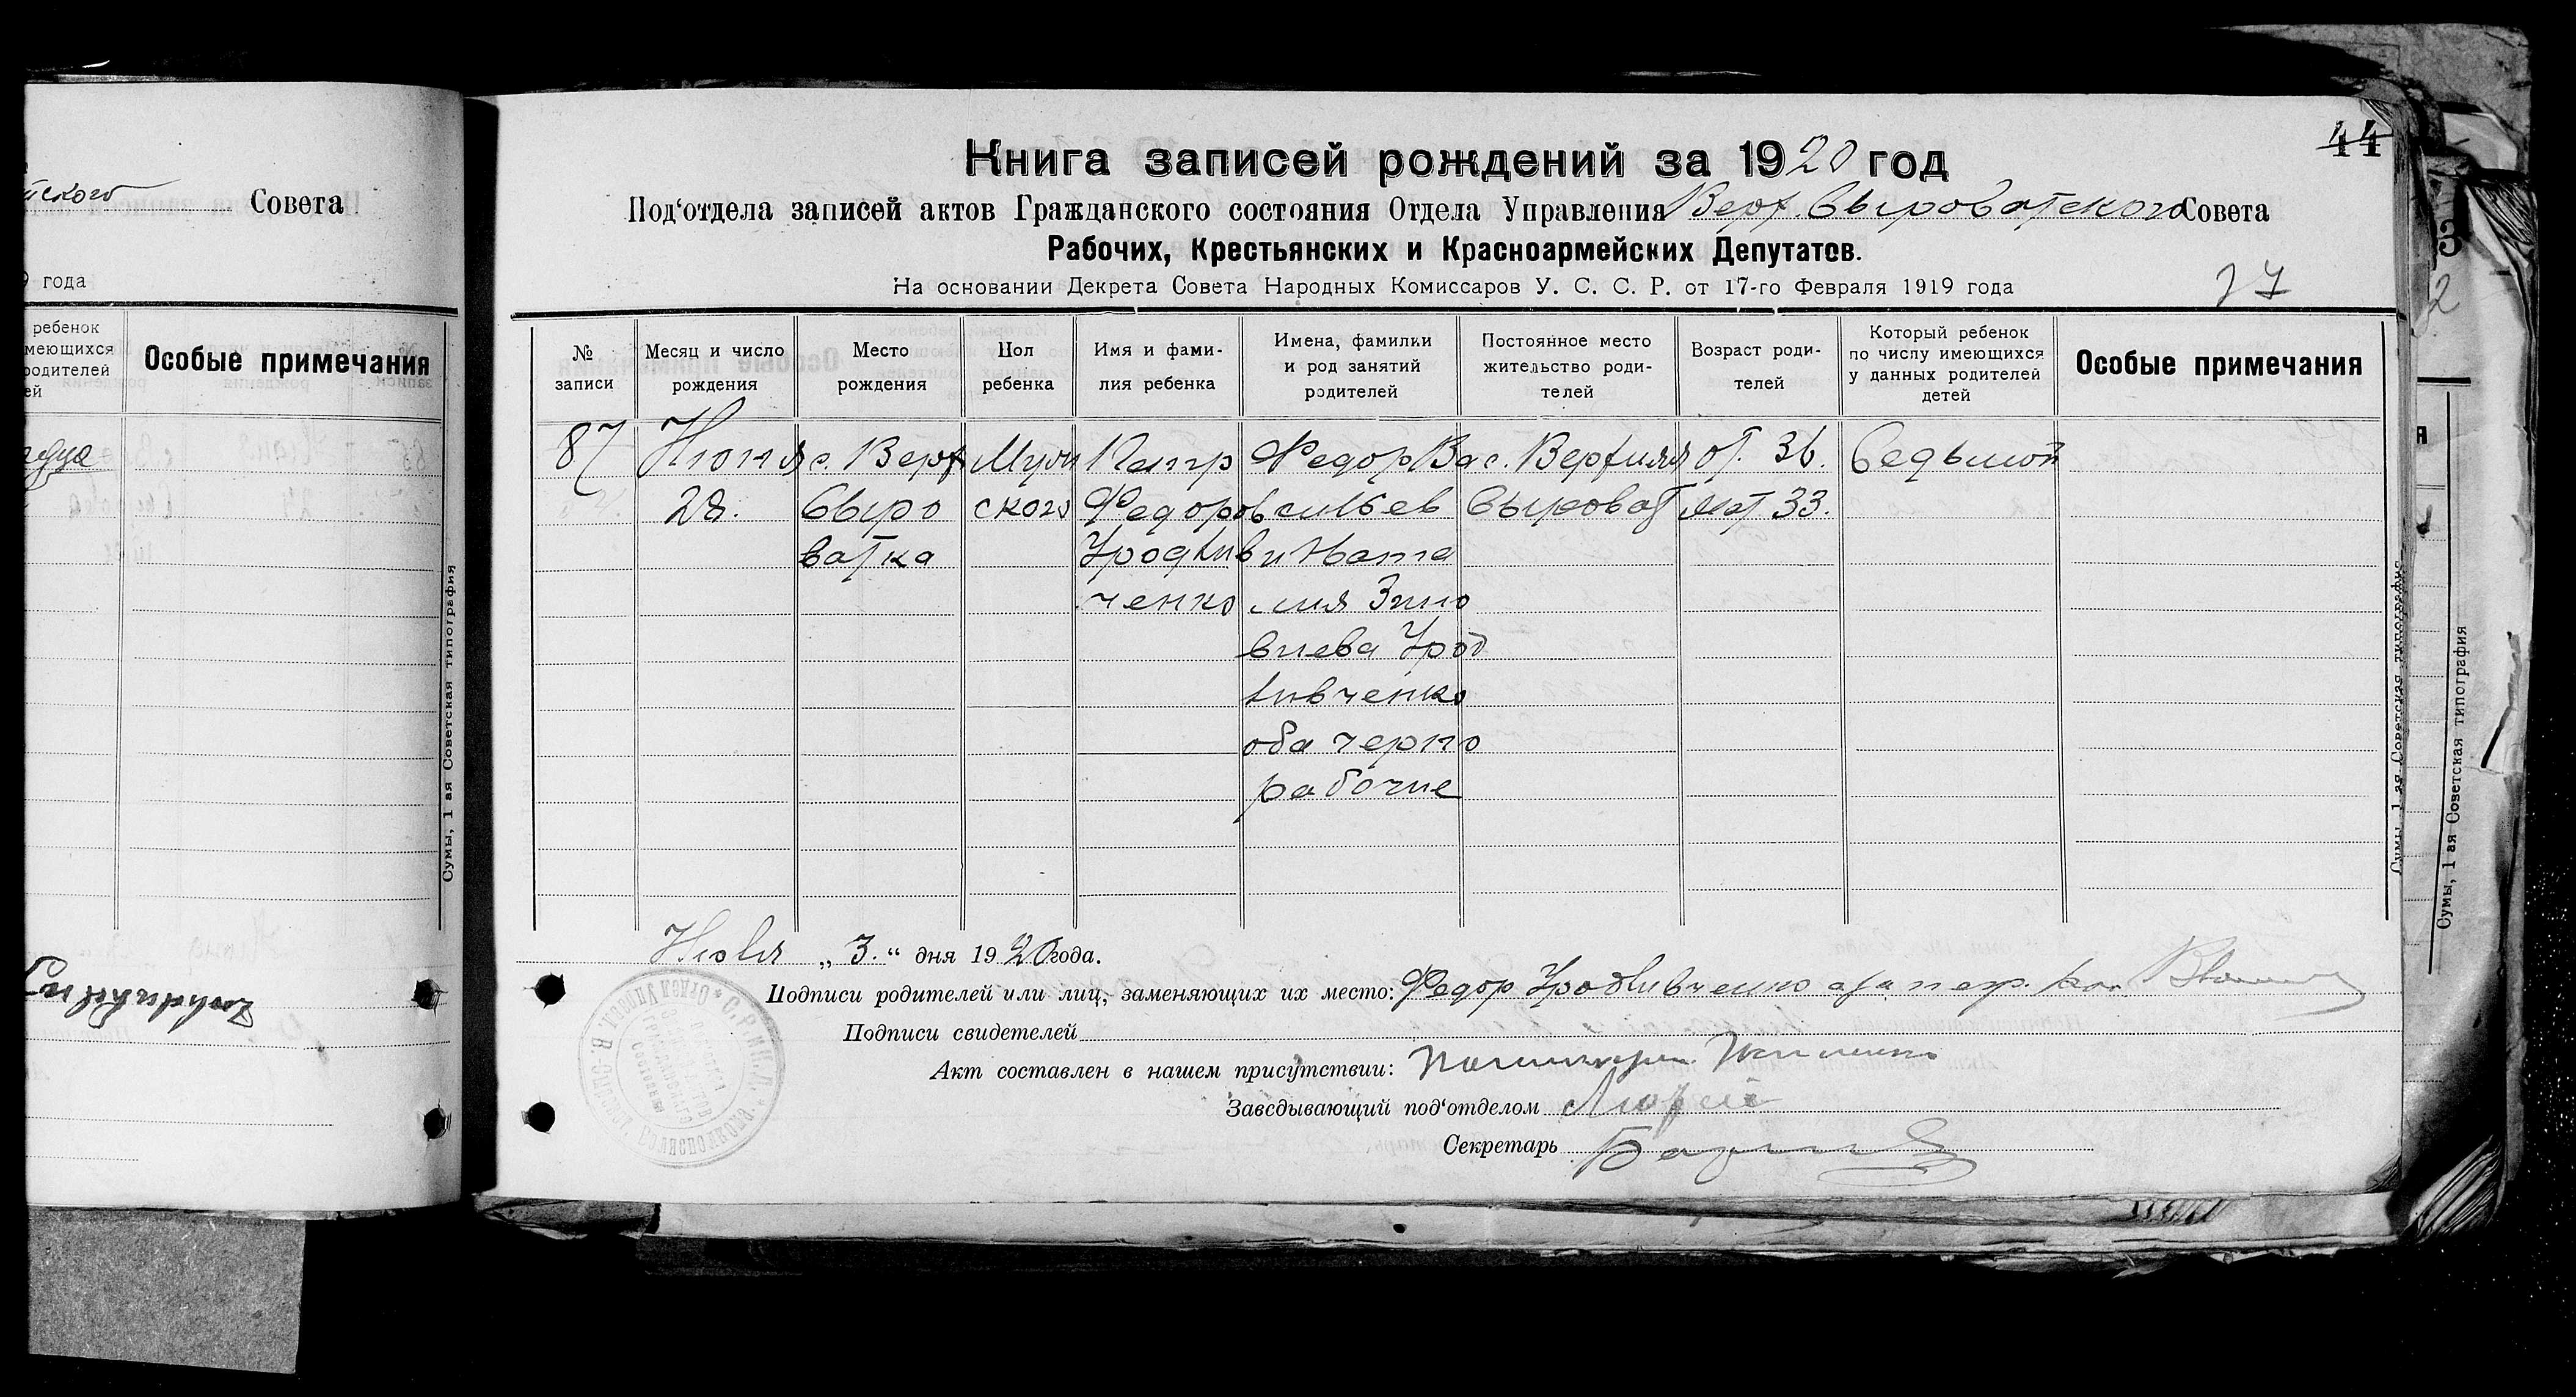 ского Совета
года
ребенок
имеющихся
родителей
ей
Особые примечания
Сумы, 1 ая Советская типография
44
Книга записей рождений за 1920 год
Под‘отдела записей актов Гражданского состояния Отдела Управления Верх. Сыроватского Совета
Рабочих, Крестьянских и Красноармейских Депутатов.
На основании Декрета Совета Народных Комиссаров У. С. С. Р. от 17-го Февраля 1919 года
№ записи
Месяц и число рождения
Место рождения
Пол ребенка
Имя и фами-
лия ребенка
Имена, фамилии
и род занятий
родителей
Постоянное место
жительство роди-
телей
Возраст роди-
телей
Который ребенок
по числу имеющихся
у данных родителей
детей
Особые примечания
87
Июня
28.
с. Верх
Сыро
ватка
Муж
ского
Петр
Федоров
Уродлив
ченко
Федор Ва
сильев
и Ната
лия Зино
виева Урод
ливченко
оба черно
рабочие
с. Верхняя
Сыроват
от. 36.
мат 33.
Седьмой
Июля „3.“ дня 1920 года.
Подписи родителей или лиц, заменяющих их место: Федор Уродливченко
Подписи свидетелей
Акт составлен в нашем присутствии:
Заведывающий под‘отделом
Секретарь
Сумы, 1 ая Советская типография
Сумы, 1 ая Советская типография